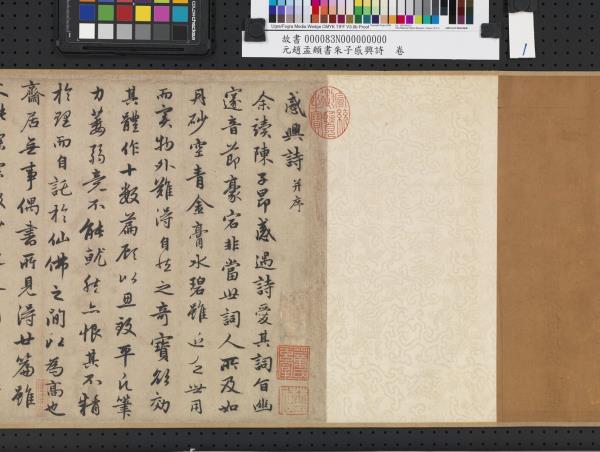 Ugra/Fogra Media Wedge CMYK TIFF V3.0b Proof
故書 000083N000000000
元趙孟頫書朱子感興詩 卷
1
感興詩 并序
余讀陳子昂感遇詩愛其詞旨幽
邃音節豪宕非當世詞人所及如
丹砂空青金膏水碧雖近乏世用
而實物外難得自然之奇寶欲効
其體作十數篇顧以思致平凡筆
力萎弱竟不能就然亦恨其不精
於理而自託於仙佛之間以為高也
齋居無事偶書所見得廿篇雖